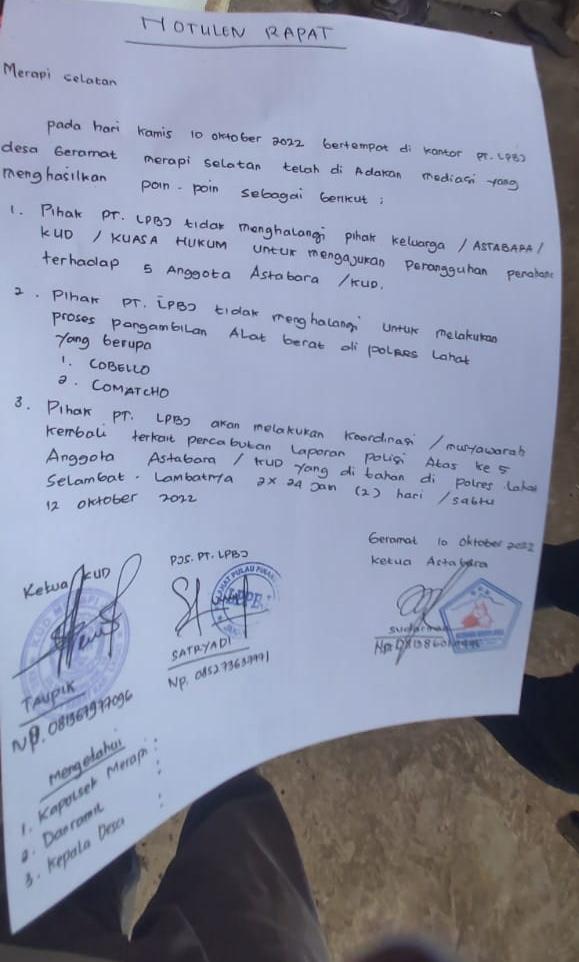 NOTULEN RAPAT
Merapi selatan
pada hari kamis 10 oktober 2022 bertempat di kantor pt. LPBJ
desa Geramat merapi selatan telah di Adakan mediasi yang
menghasilkan poin - poin sebagai berikut ;
1. Pihak PT. LPBJ tidak menghalangi pihak keluarga / ASTABARA /
KUD / KUASA HUKUM untuk mengajukan Perangguhan penahan
terhadap 5 Anggota Astabara / KUD.
2. Pihak PT. LPBJ tidak menghalangi untuk melakukan
proses pangambilan Alat berat di polres Lahat
yang berupa
1. COBELLO
2. COMATCHO
3. Pihak PT. LPBJ akan melakukan koordinasi / musyawarah
kembali terkait percabutan Laporan polisi Atas ke 5
Anggota Astabara / KUD yang di tahan di polres Lahat
Selambat - Lambatnya 2x24 jam (2) hari / sabtu
12 oktober 2022
Geramat 10 oktober 2022
Ketua KUD
PJS. PT. LPBJ
ketua Astabara
TAUPIK
NP. 081367977096
SATRYADI
Np. 0852 73637991
sudarman
Mengetahui
1. Kapolsek Merapi :
2. Danramil :
3. Kepala Desa :